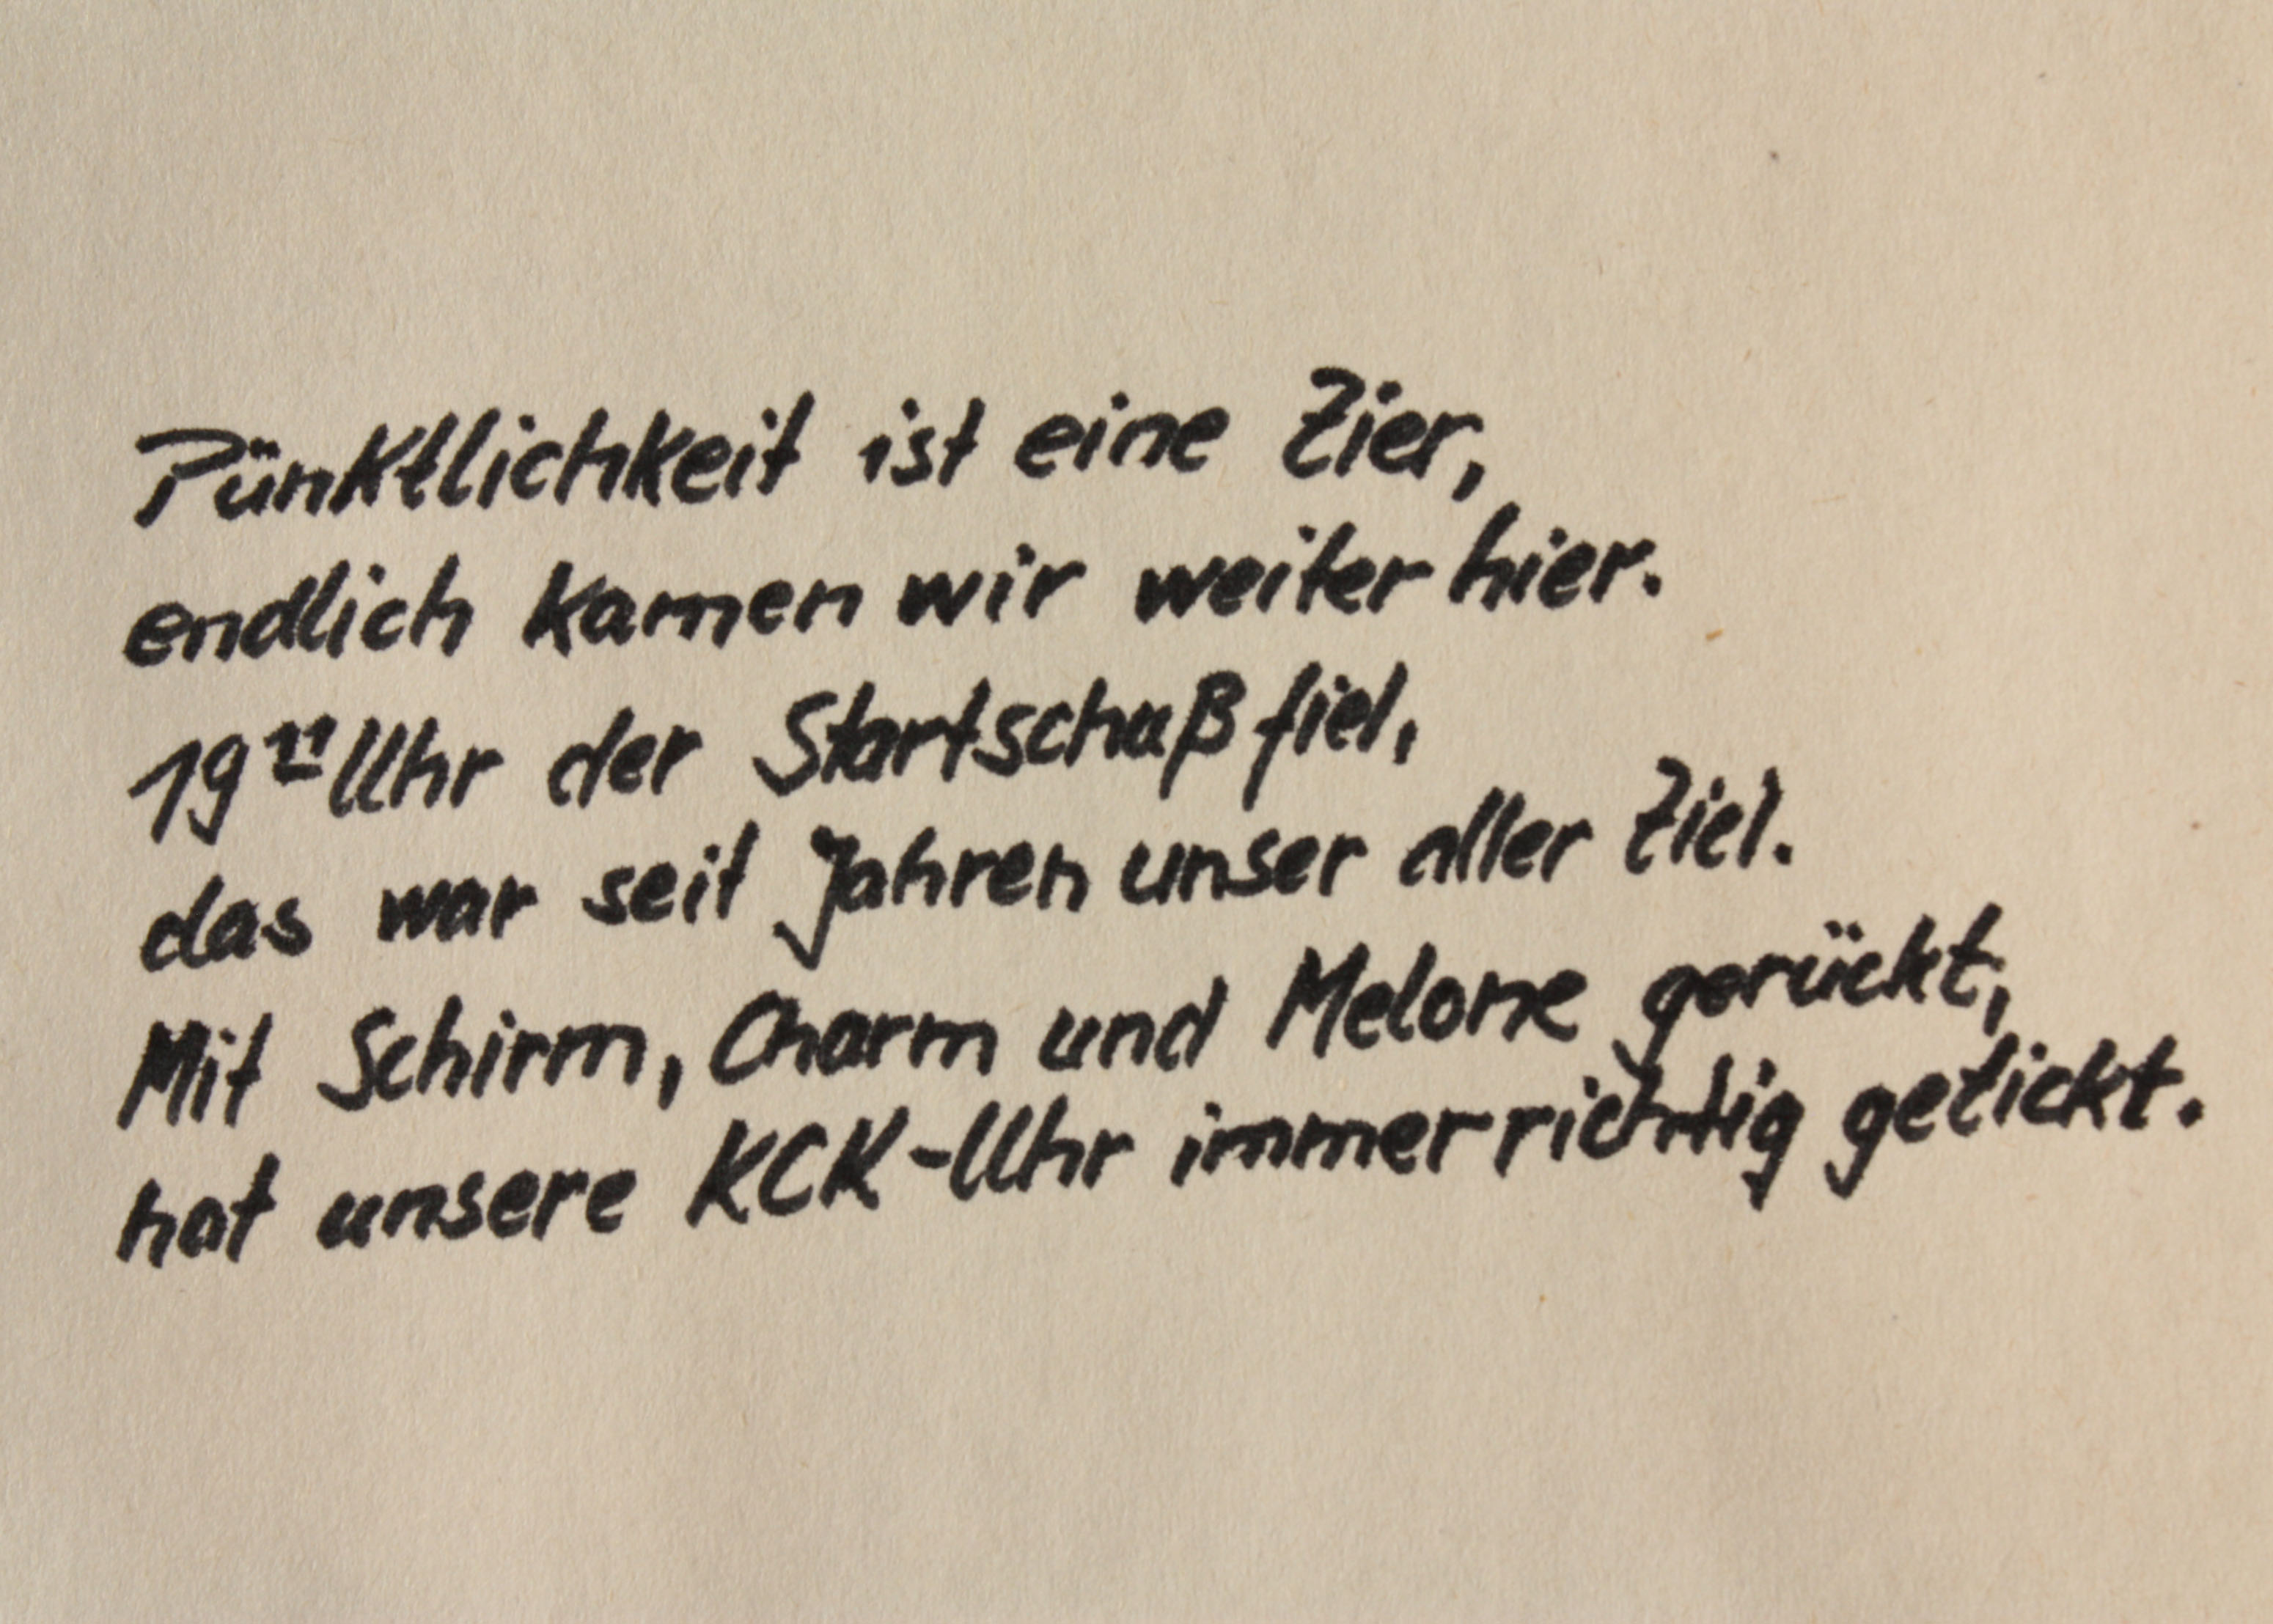 Pünktlichkeit ist eine Zier,
endlich kamen wir weiter hier.
19¹¹ Uhr der Startschuß fiel,
das war seit Jahren unser aller Ziel.
Mit Schirm, Charm und Melone gerückt,
hat unsere KCK-Uhr immer richtig getickt.